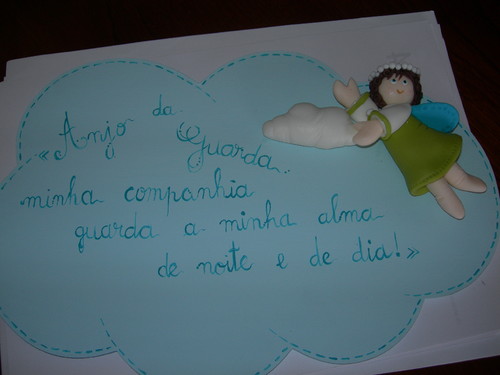 «Anjo da Guarda
minha companhia
guarda a minha alma
de noite e de dia!»